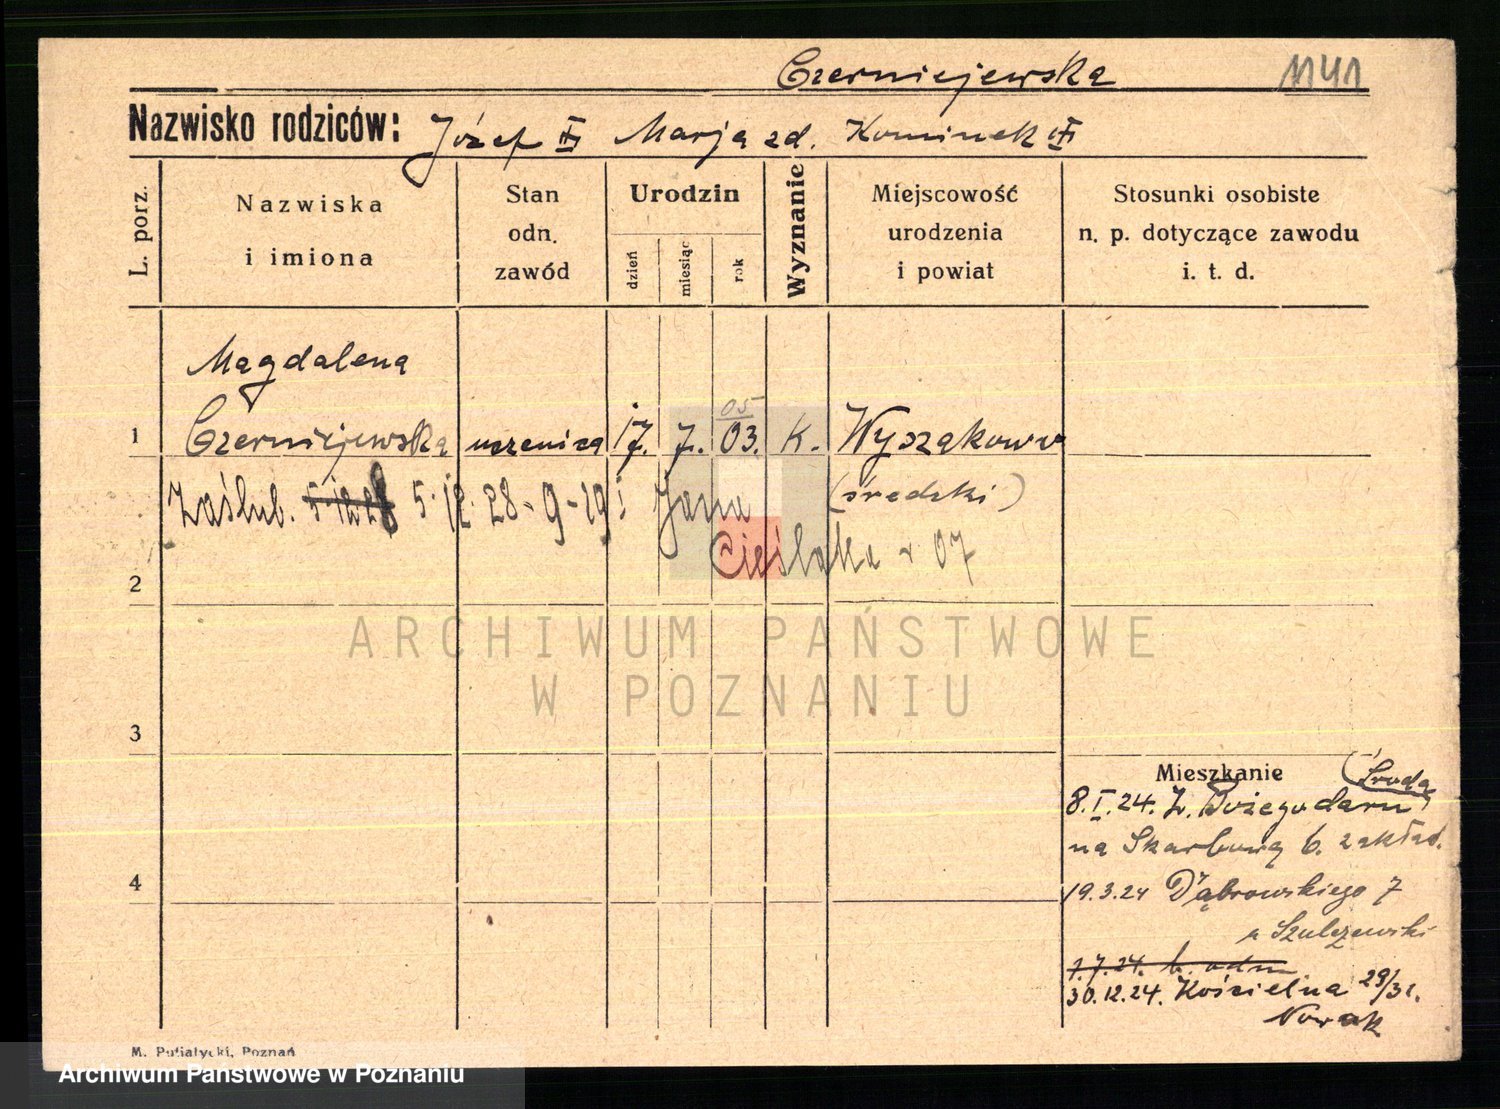 Czerniejewska 1141
Nazwisko rodziców: Józef Marja zd. Kominek
L. porz.
Nazwiska
i imiona
Stan
odn.
zawód
Urodzin
dzień
miesiąc
rok
Wyznanie
Miejscowość
urodzenia
i powiat
Stosunki osobiste
n. p. dotyczące zawodu
i. t. d.
Magdalena
05
1 Czerniejewska uczenica 17. 7. 03. K. Wyszakowo
(średzki)
Zaślub. 5.12.28 5.12.28 - 9-29 Jana
Cieślaka 07
2
ARCHIWUM PAŃSTWOWE
W POZNANIU
3
Mieszkanie (Środa)
8.I.24. Z. Bożegodaru
na Skarbową 6. zakład.
4
19.3.24 Dąbrowskiego 7
u Szulczewski
1.7.24. b. odm
30.12.24. Kościelna 29/31.
Nowak
M. Putiatycki, Poznań
Archiwum Państwowe w Poznaniu